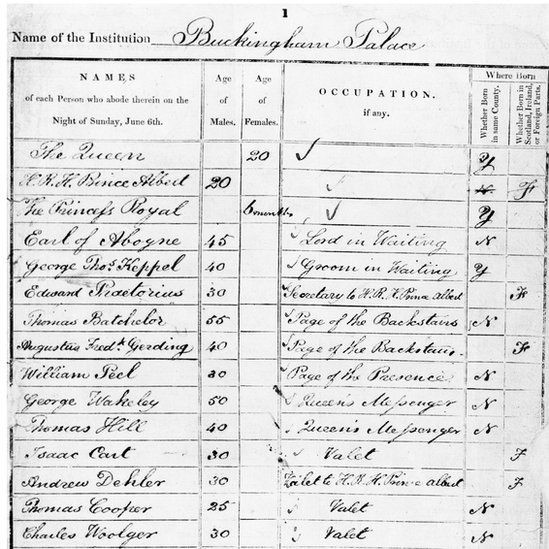 1
Name of the Institution Buckingham Palace
NAMES of each Person who abode therein on the Night of Sunday, June 6th. Age of Males. Age of Females. OCCUPATION, if any. Where Born Whether Born in same County. Whether Born in Scotland, Ireland, or Foreign Parts.
The Queen 20 ✓ Y
H.R.H. Prince Albert 20 ✓ N F
The Princess Royal 6 months ✓ Y
Earl of Aboyne 45 Lord in Waiting N
George Thos. Keppel 40 Groom in Waiting Y
Edward Praetorius 30 Secretary to H.R.H. Prince Albert F
Thomas Batchelor 55 Page of the Backstairs N
Augustus Fredk. Gerding 40 Page of the Backstairs F
William Peel 30 Page of the Presence N
George Wakeley 50 Queen's Messenger N
Thomas Hill 40 Queen's Messenger N
Isaac Cart 30 Valet F
Andrew Dehler 30 Valet to H.R.H. Prince Albert F
Thomas Cooper 25 Valet N
Charles Woolger 30 Valet N